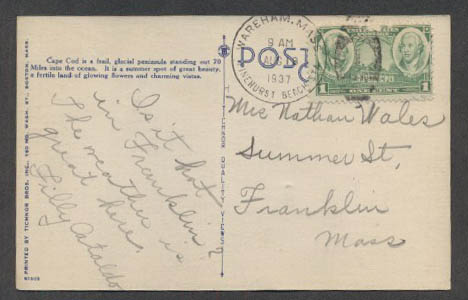 Cape Cod is a frail, glacial peninsula standing out 70
Miles into the ocean. It is a summer spot of great beauty,
a fertile land of glowing flowers and charming vistas.
POST
C
WAREHAM, MASS.
9 AM
AUG
1937
PINEHURST BEACH
1
1
Is it hot
in Franklin?
The weather is
great here.
Lilly Cataldo
Mrs Nathan Wales
Summer St,
Franklin
Mass
TICHNOR QUALITY VIEWS
PRINTED BY TICHNOR BROS. INC., 160 NO. WASH. ST., BOSTON, MASS.